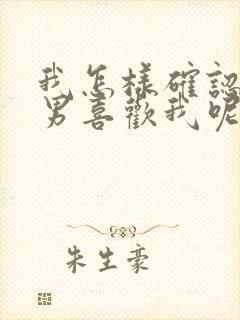 我怎樣確認
男喜歡我呢
朱生豪